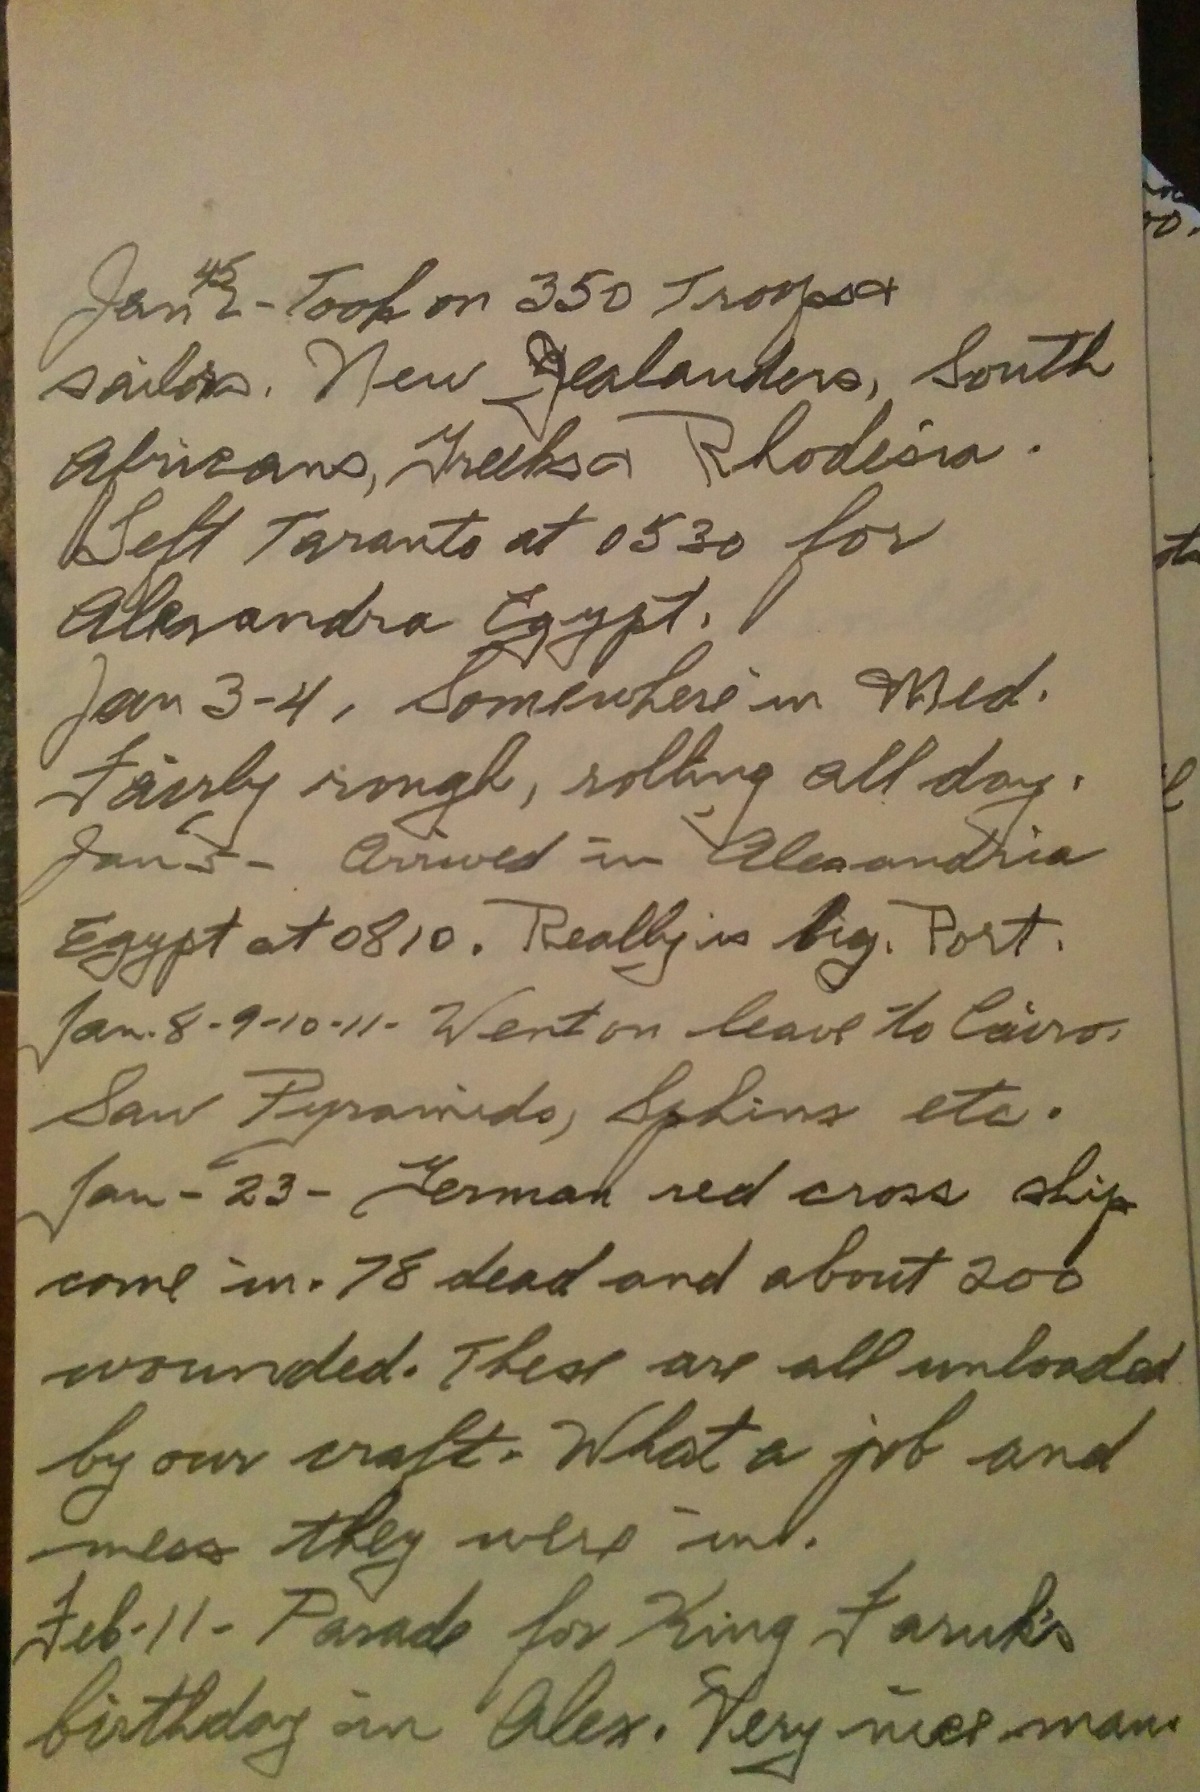 Jan 2 45 - Took on 350 Troops &
sailors. New Zealanders, South
Africans, Greeks & Rhodesia.
Left Taranto at 0530 for
Alexandra Egypt.
Jan 3-4, Somewhere in Med.
Fairly rough, rolling all day.
Jan 5 - Arrived in Alexandria
Egypt at 0810. Really is big. Port.
Jan. 8-9-10-11- Went on leave to Cairo.
Saw Pyramids, Sphinx etc.
Jan - 23 - German red cross ship
come in. 78 dead and about 200
wounded. These are all unloaded
by our craft. What a job and
mess they were in.
Feb-11- Parade for King Faruk's
birthday in Alex. Very nice man.